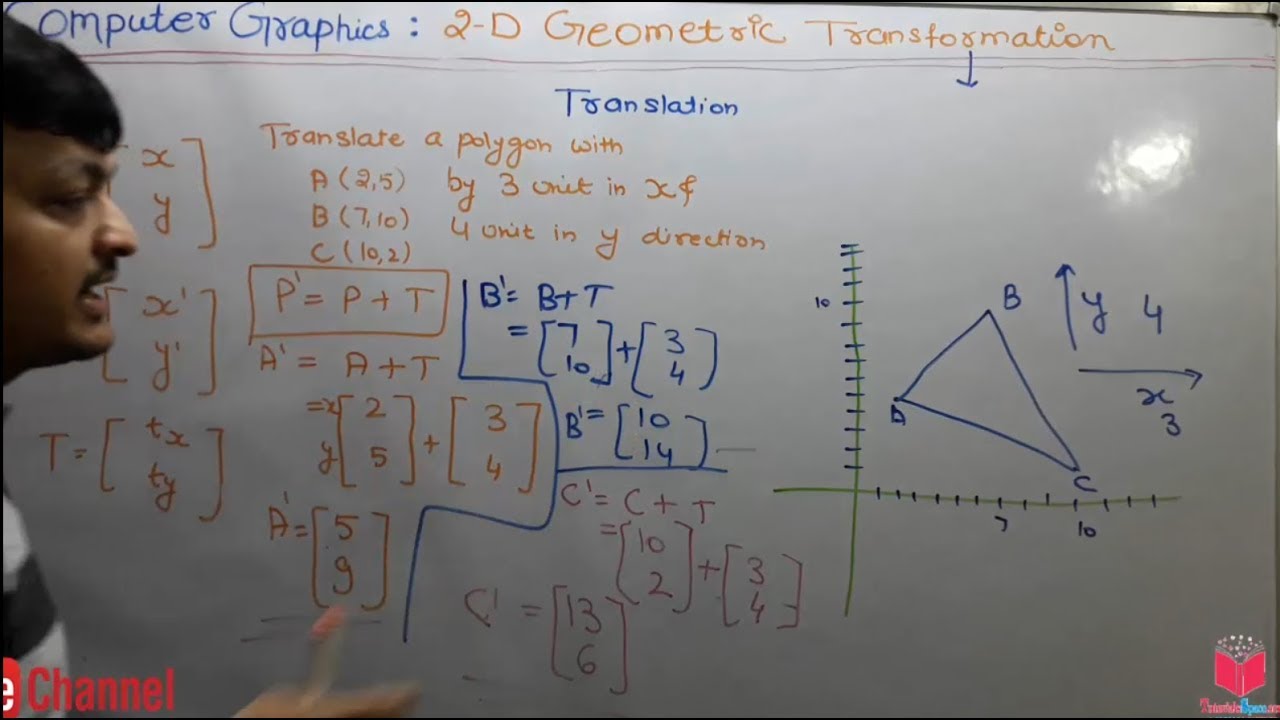 Computer Graphics: 2-D Geometric Transformation
Translation
Translate a polygon with
A (2,5) by 3 unit in x &
B (7,10) 4 unit in y direction
C (10,2)
x
y
x'
y'
T = [tx
ty]
P' = P + T
A' = A + T
= x [2 + [3
y 5] 4]
A' = [5
9]
B' = B + T
= [7 + [3
10] 4]
B' = [10
14]
C' = C + T
= [10 + [3
2] 4]
C' = [13
6]
10
A
B
C
y 4
x
3
7
10
e Channel